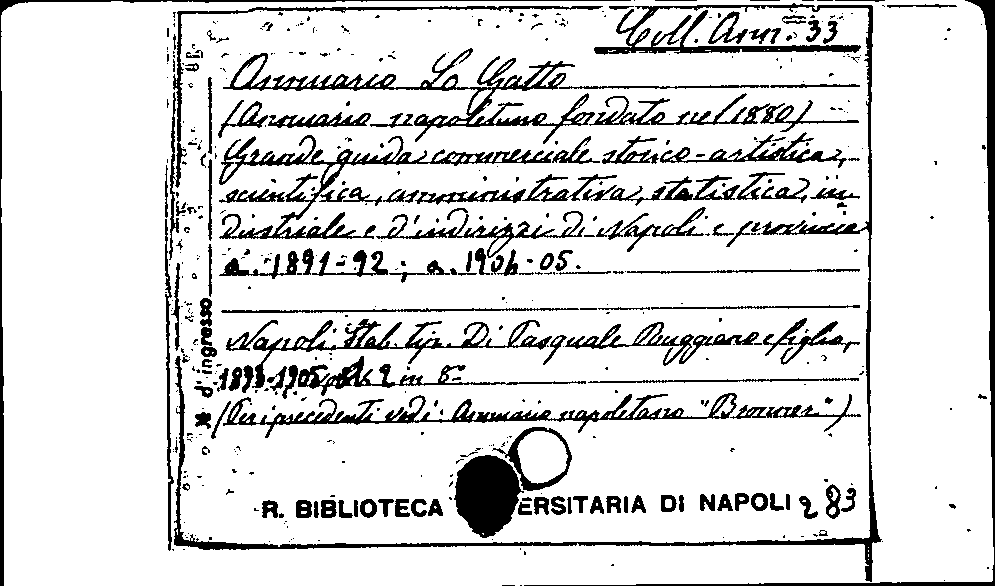 Coll. Ann. 33
Annuario Lo Gatto
(Annuario napoletano fondato nel 1880)
Grande guida commerciale storico-artistica,
scientifica, amministrativa, statistica, in
dustriale e d'indirizzi di Napoli e provincia
a. 1891-92; a. 1904-05.
Napoli. Stab. tip. Di Pasquale Ruggiano e figlio,
1891-1905, 2 in 8º
(Per i precedenti vedi: Annuario napoletano "Bronner")
d'ingresso
R. BIBLIOTECA ERSITARIA DI NAPOLI 283